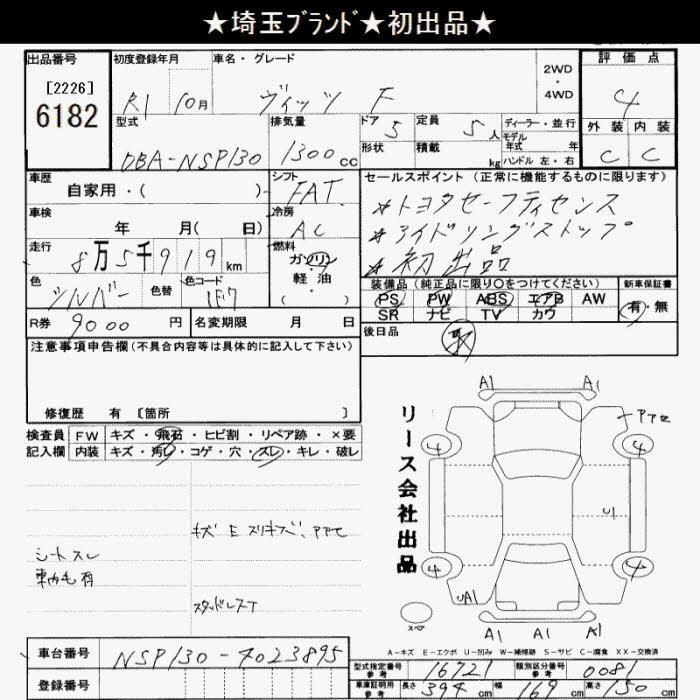 ★埼玉ﾌﾞﾗﾝﾄﾞ★初出品★
出品番号 初度登録年月 車名・グレード 2WD・4WD 評価点
[2226]
6182
R1 10月 ヴィッツ F 4
型式 排気量 ドア 5 定員 5人 ディーラー・並行 外装 内装
モデル年式 年
DBA-NSP130 1300cc 形状 積載 kg ハンドル 左・右 C C
車歴 シフト セールスポイント(正常に機能するものに限ります)
自家用・( ) FAT ★トヨタセーフティセンス
車検 冷房 ★アイドリングストップ
年 月( 日) AC ★初出品
走行 燃料
8万5千919km ガソリン・軽油・( )
色 色替 色コード 装備品(純正品に限り〇をつけてください) 新車保証書
シルバー 1F7 PS PW ABS エアB AW 有・無
SR ナビ TV カワ
R券 9000円 名変期限 月 日 後日品 取
注意事項申告欄(不具合内容等は具体的に記入して下さい)
修復歴 有 [箇所 ]
検査員記入欄 FW キズ・飛石・ヒビ割・リペア跡・×要
内装 キズ・汚レ・コゲ・穴・スレ・キレ・破レ
キズ E スリキズ、アアセ
シートスレ
スタッドレスT
リース会社出品
A1 A1
アアセ
4 4
U1
4 4
UA1
A1 A1 A1
スペア
A-キズ E-エクボ U-凹み W-補修跡 S-サビ C-腐食 XX-交換済
車台番号 NSP130-4023895
登録番号
型式指定番号 参考 16721 類別区分番号 参考 0081
車庫証明用 参考 長さ 394cm 幅 169cm 高さ 150cm